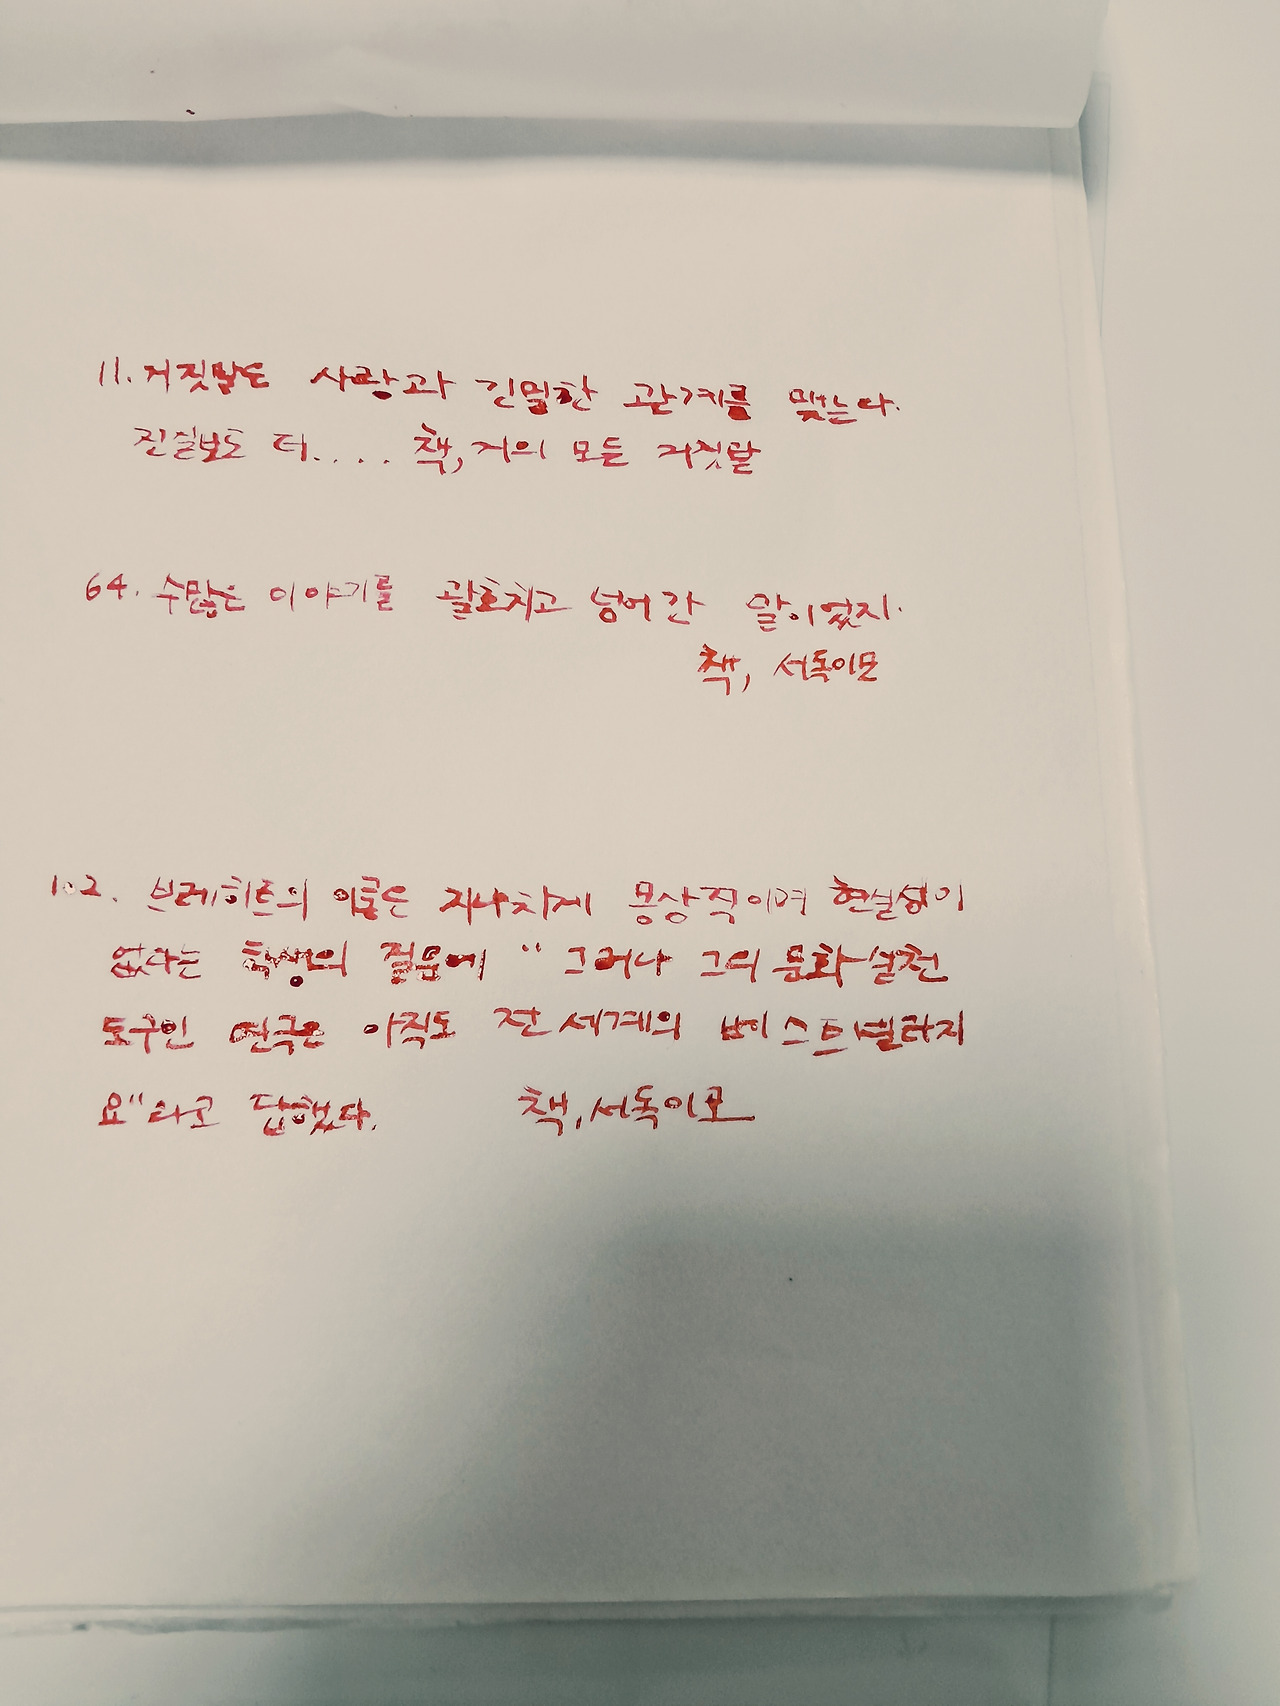 11. 거짓말은 사랑과 긴밀한 관계를 맺는다.
진실보다 더.... 책, 거의 모든 거짓말
64. 수많은 이야기를 괄호치고 넘어간 말이었지.
책, 서독이모
102. 브레히트의 이론은 지나치게 몽상적이며 현실성이
없다는 학생의 질문에 “그러나 그의 문화실천
도구인 연극은 아직도 전세계의 베스트셀러지
요”라고 답했다. 책, 서독이모